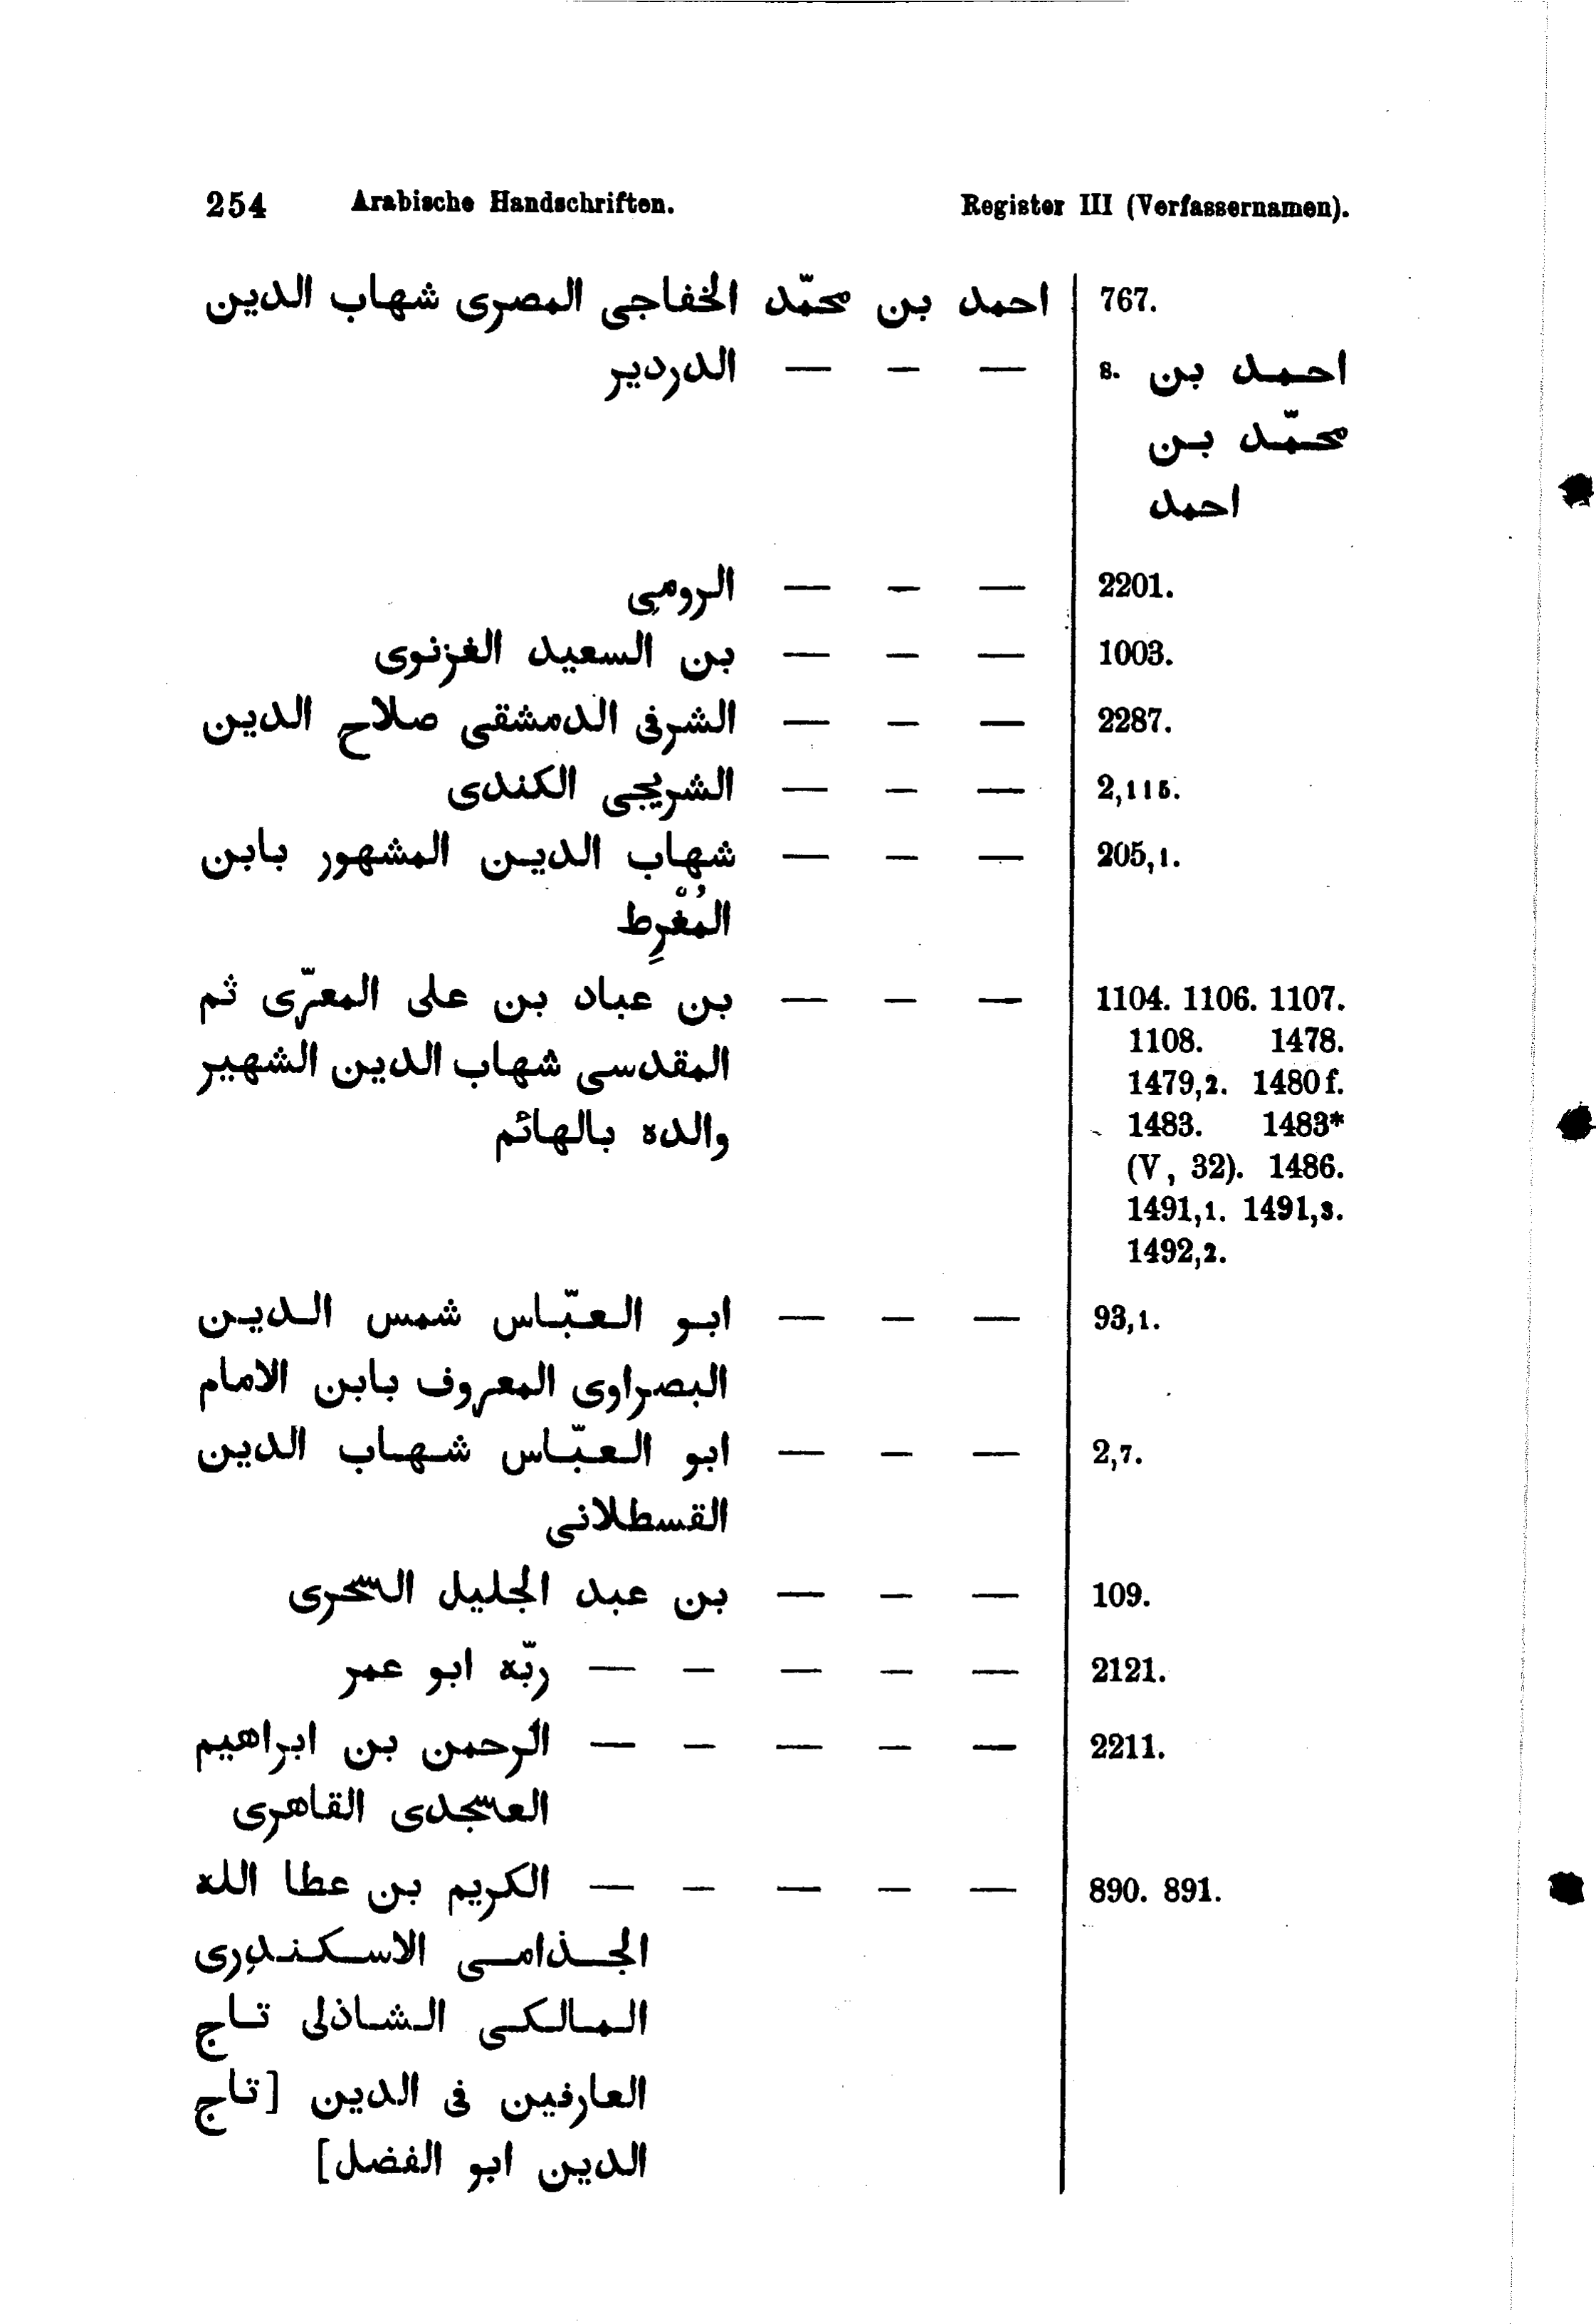 254 Arabische Handschriften. Register III (Verfassernamen).
احمد بن محمّد الخفاجى المصرى شهاب الدين 767.
— — — الدردير s. احمد بن
محمّد بن
احمد
— — — الرومى 2201.
— — — بن السعيد الغزنوى 1003.
— — — الشرفى الدمشقى صلاح الدين 2287.
— — — الشريجى الكندى 2,115.
— — — شهاب الدين المشهور بابن 205,1.
المُغْرِط
— — — بن عباد بن على المعرّى ثم 1104. 1106. 1107.
المقدسى شهاب الدين الشهير 1108. 1478.
1479,2. 1480 f.
والده بالهائم 1483. 1483*
(V, 32). 1486.
1491,1. 1491,3.
1492,2.
— — — ابو العبّاس شمس الدين 93,1.
البصراوى المعروف بابن الامام
— — — ابو العبّاس شهاب الدين 2,7.
القسطلانى
— — — بن عبد الجليل السحرى 109.
— — — — — ربّه ابو عمر 2121.
— — — — — الرحمن بن ابراهيم 2211.
العسجدى القاهرى
— — — — — الكريم بن عطا الله 890. 891.
الجذامى الاسكندرى
المالكى الشاذلى تاج
العارفين فى الدين [تاج
الدين ابو الفضل]